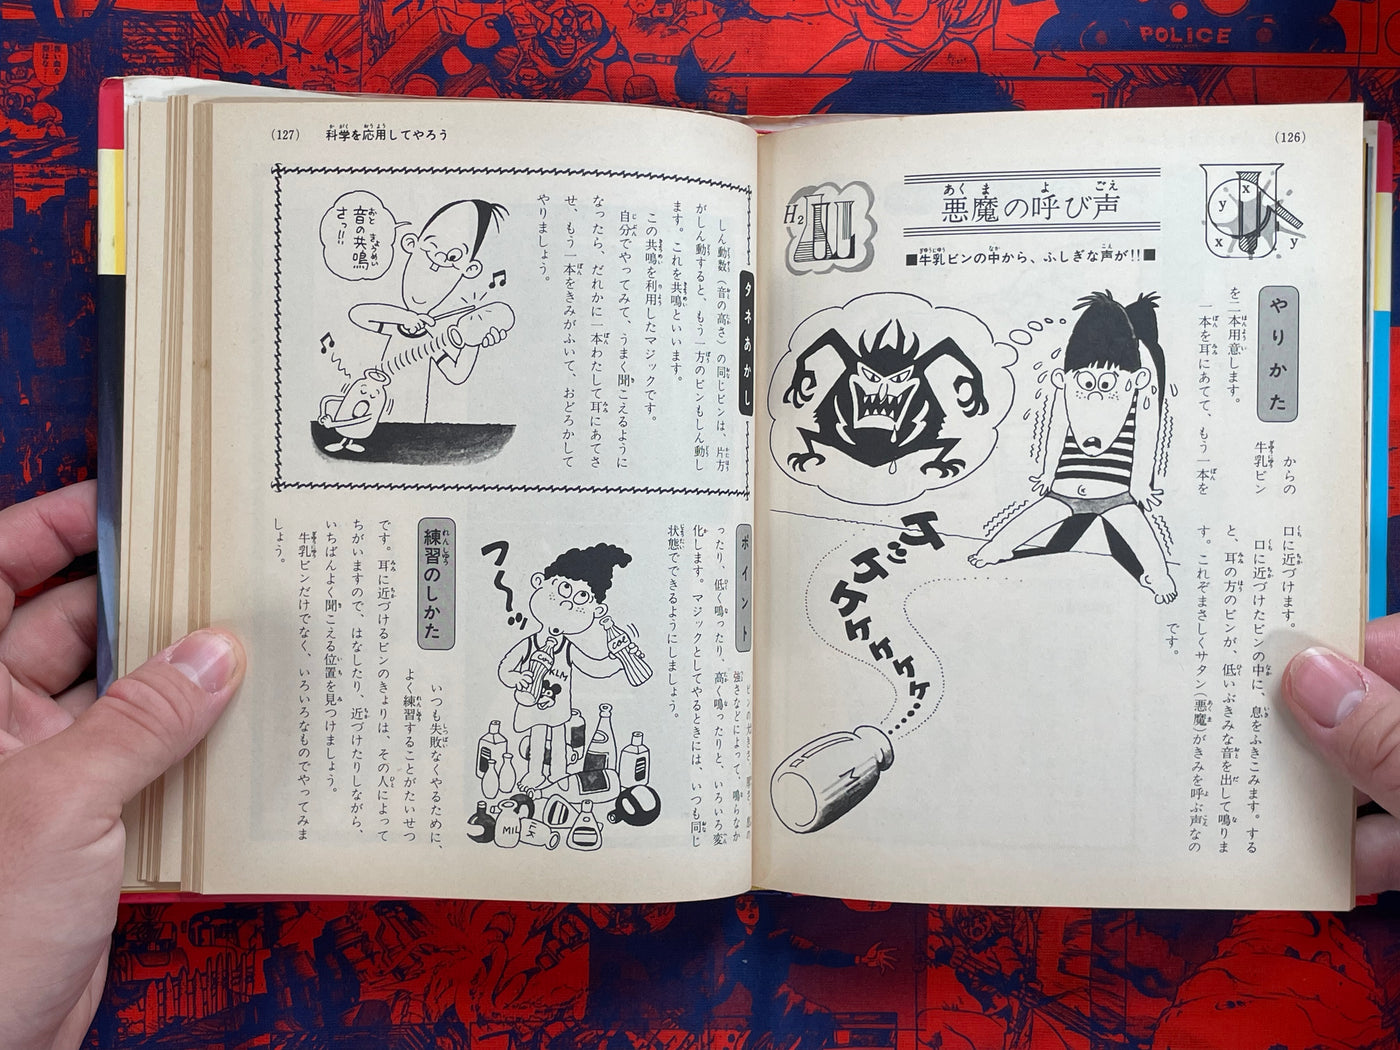 (126)
悪魔の呼び声
■牛乳ビンの中から、ふしぎな声が!!■
H₂
x
y
x
y
やりかた
からの
牛乳ビン
を二本用意します。
一本を耳にあてて、もう一本を
口に近づけます。
口に近づけたビンの中に、息をふきこみます。する
と、耳の方のビンが、低いぶきみな音を出して鳴りま
す。これぞまさしくサタン(悪魔)がきみを呼ぶ声なの
です。
ケケケケケケケ
M
(127)
科学を応用してやろう
タネあかし
しん動数(音の高さ)の同じビンは、片方
がしん動すると、もう一方のビンもしん動し
ます。これを共鳴といいます。
この共鳴を利用したマジックです。
自分でやってみて、うまく聞こえるように
なったら、だれかに一本わたして耳にあてさ
せ、もう一本をきみがふいて、おどろかして
やりましょう。
音の共鳴
さっ!!
ポイント
強さなどによって、鳴らなか
ったり、低く鳴ったり、高く鳴ったりと、いろいろ変
化します。マジックとしてやるときには、いつも同じ
状態でできるようにしましょう。
フ〜〜ッ
KLM
MIL
ILK
練習のしかた
いつも失敗なくやるために、
よく練習することがたいせつ
です。耳に近づけるビンのきょりは、その人によって
ちがいますので、はなしたり、近づけたりしながら、
いちばんよく聞こえる位置を見つけましょう。
牛乳ビンだけでなく、いろいろなものでやってみま
しょう。
POLICE